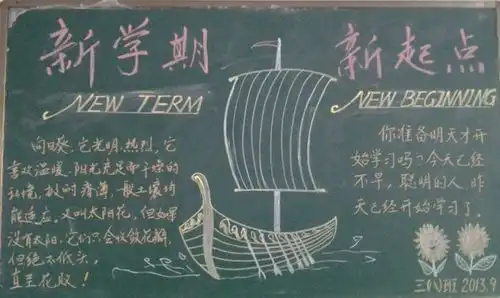 新学期 新起点
NEW TERM
NEW BEGINNING
向日葵,它光明,热烈,它
喜欢温暖,阳光充足而干燥的
环境,极耐瘠薄,一般土壤均
能适应,又叫太阳花,但如果
没有太阳,它们只会收敛花瓣,
但绝不低头,
直至花败!
你准备明天才开
始学习吗?今天已经
不早,聪明的人,昨
天已经开始学习了。
三(八)班 2013.9